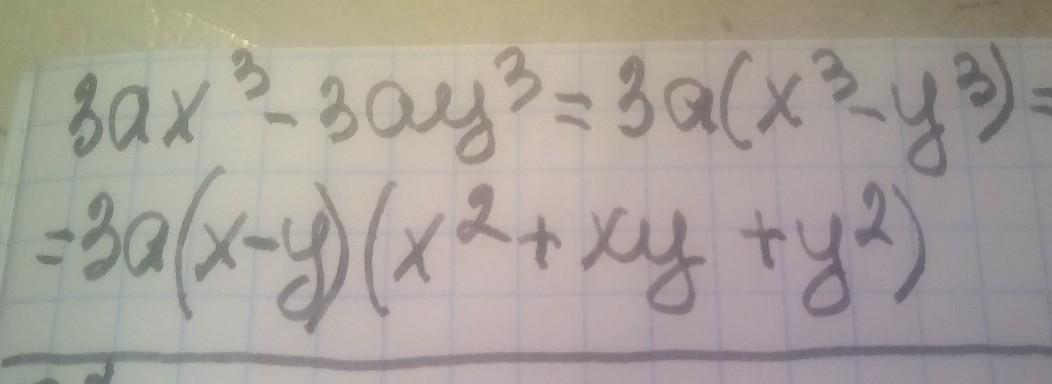 3ax³-3ay³=3a(x³-y³)=
=3a(x-y)(x²+xy+y²)